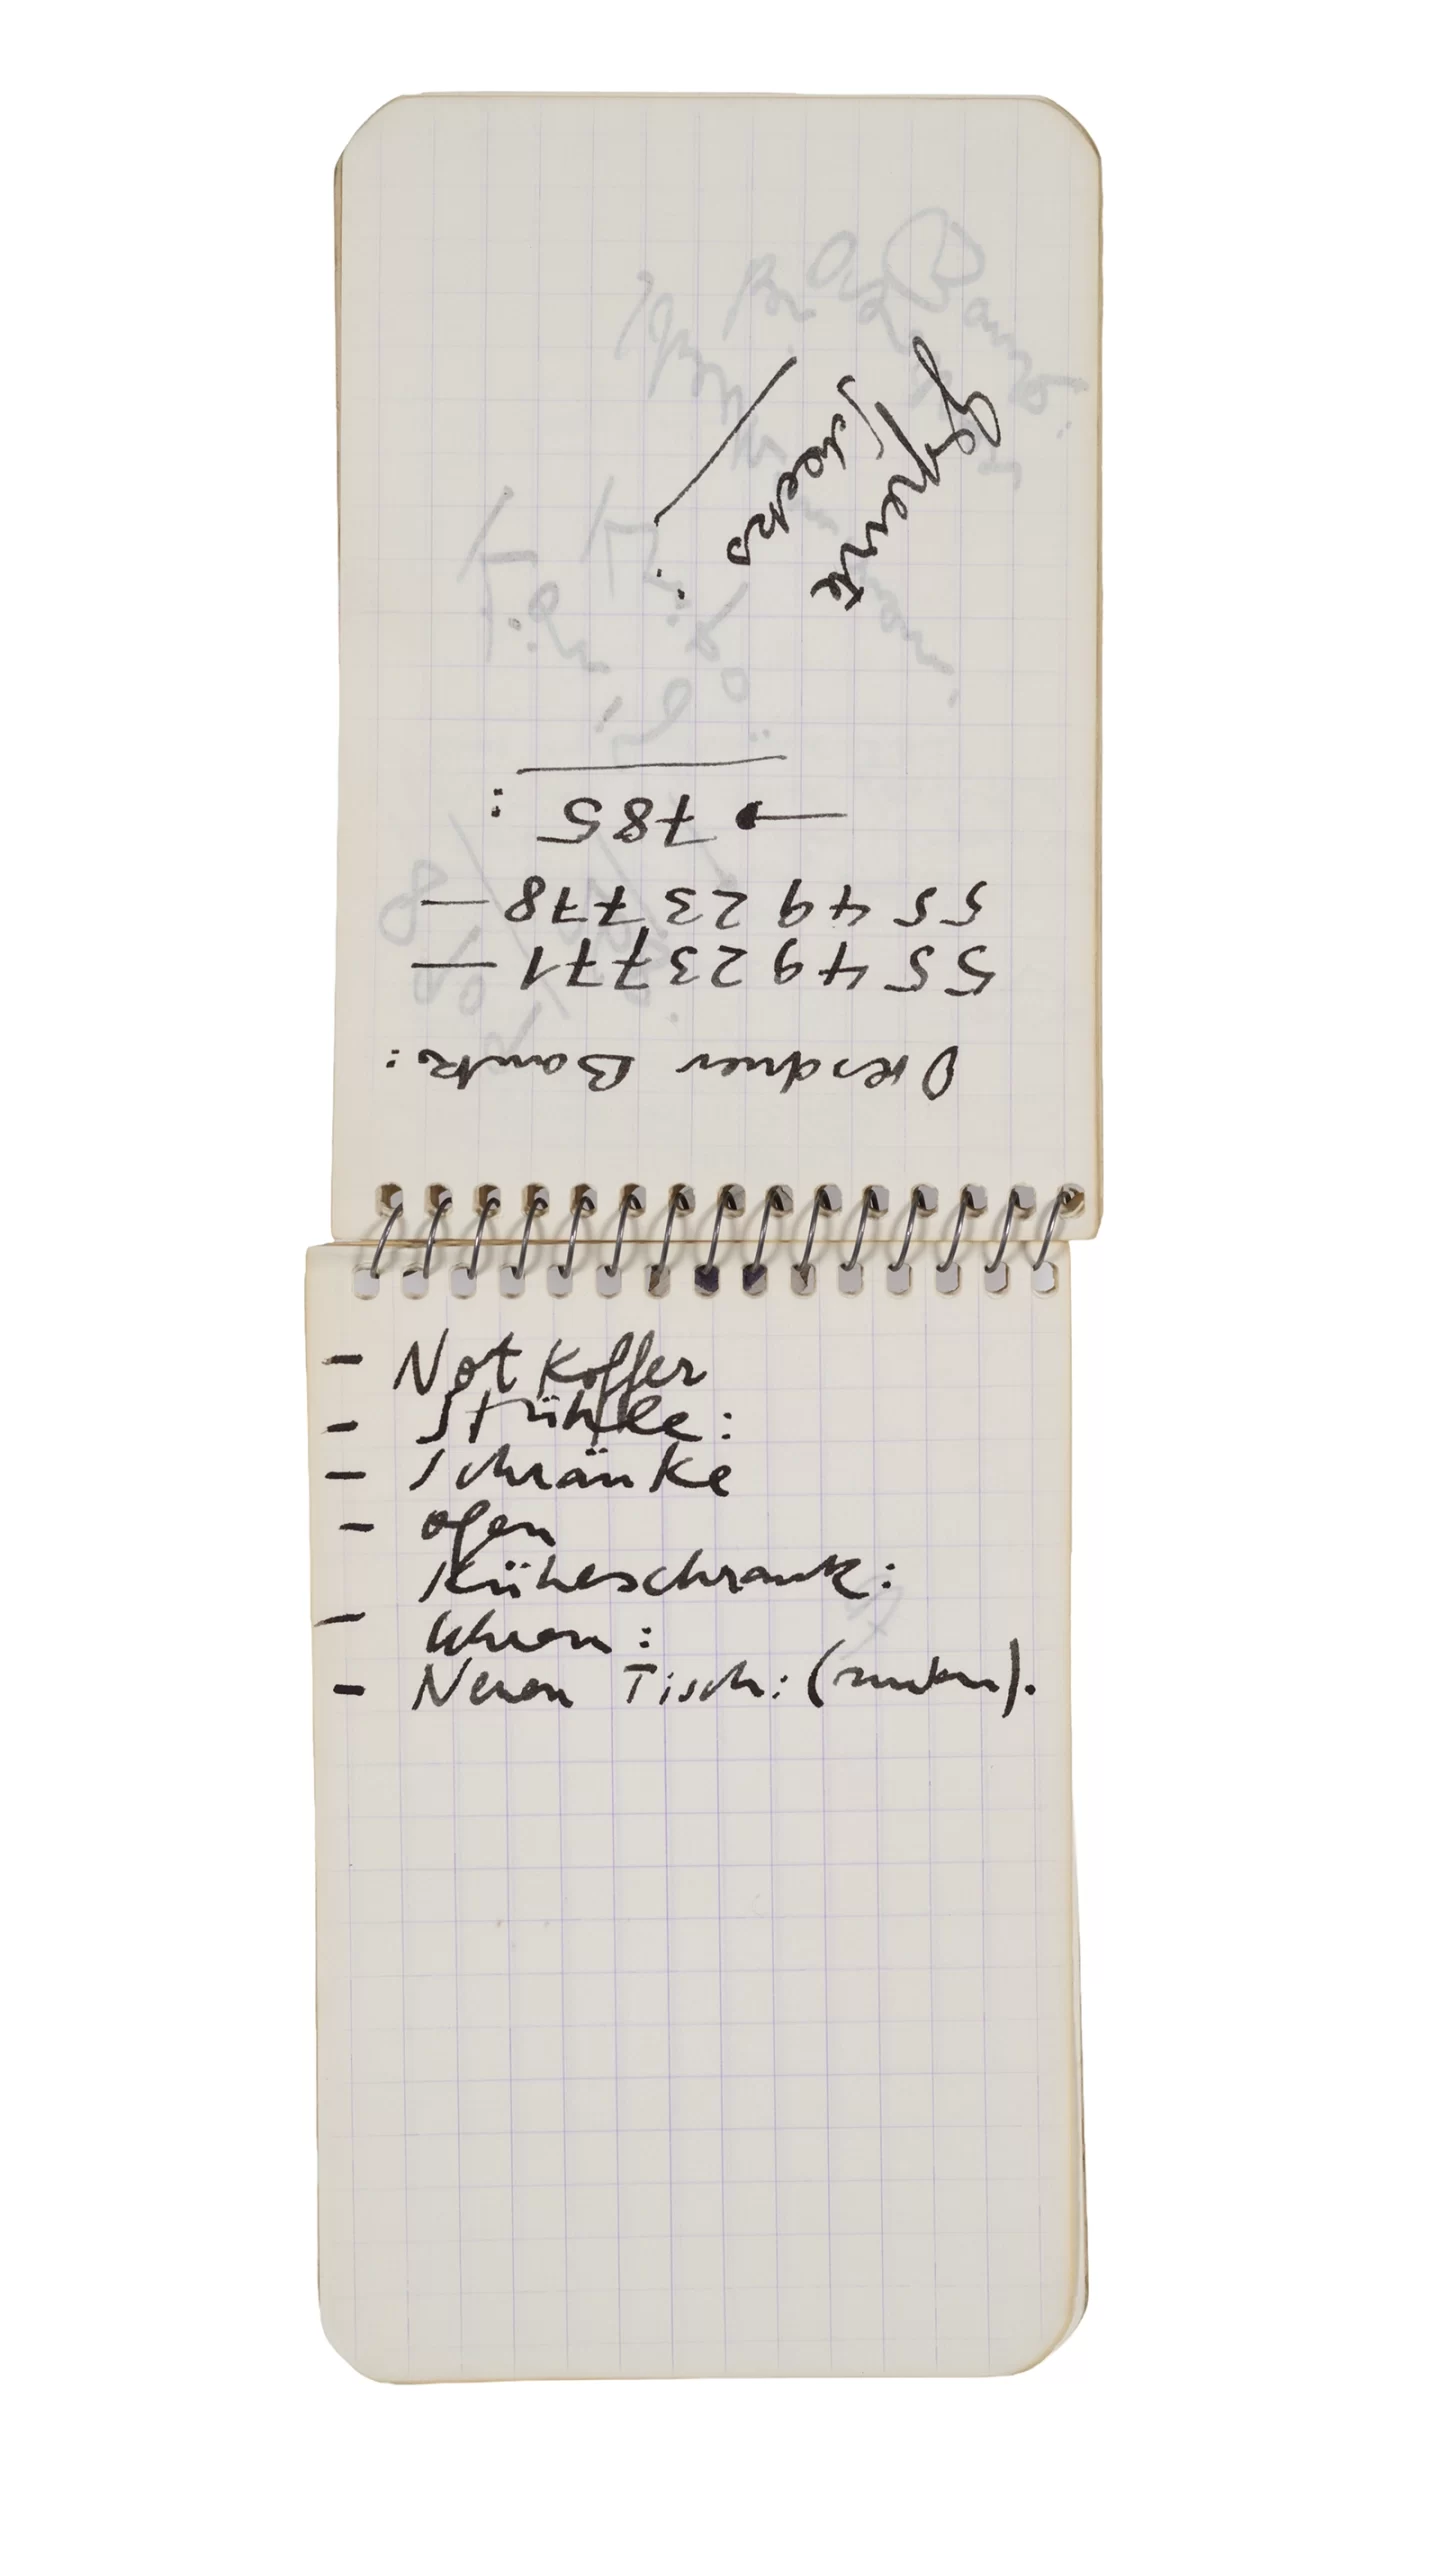 Dresdner Bank:
55 49 23 771 —
55 49 23 778 —
→ 785 :
gesperrte
Schecks
- Notkoffer
- Stühle:
- Schränke
- Ofen
Küheschrank:
- Uhren:
- Neuen Tisch: